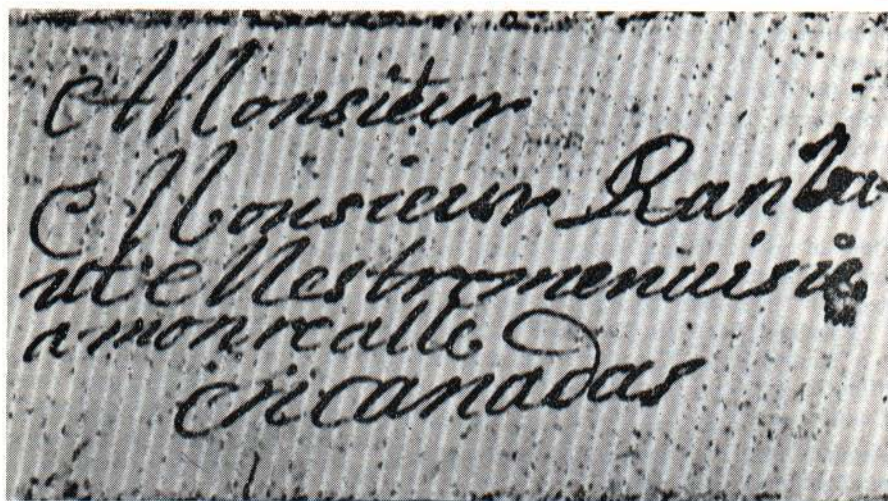 Monsieur
Monsieur Ranba
ut Mestremenuisie
a monrealle
en canadas